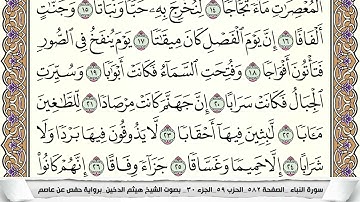 ٱلْمُعْصِرَٰتِ مَآءً ثَجَّاجًا ١٤ لِّنُخْرِجَ بِهِۦ حَبًّا وَنَبَاتًا ١٥ وَجَنَّٰتٍ
أَلْفَافًا ١٦ إِنَّ يَوْمَ ٱلْفَصْلِ كَانَ مِيقَٰتًا ١٧ يَوْمَ يُنفَخُ فِى ٱلصُّورِ
فَتَأْتُونَ أَفْوَاجًا ١٨ وَفُتِحَتِ ٱلسَّمَآءُ فَكَانَتْ أَبْوَٰبًا ١٩ وَسُيِّرَتِ
ٱلْجِبَالُ فَكَانَتْ سَرَابًا ٢٠ إِنَّ جَهَنَّمَ كَانَتْ مِرْصَادًا ٢١ لِّلطَّٰغِينَ
مَـَٔابًا ٢٢ لَّٰبِثِينَ فِيهَآ أَحْقَابًا ٢٣ لَّا يَذُوقُونَ فِيهَا بَرْدًا وَلَا
شَرَابًا ٢٤ إِلَّا حَمِيمًا وَغَسَّاقًا ٢٥ جَزَآءً وِفَاقًا ٢٦ إِنَّهُمْ كَانُوا۟
سورة النبأ _ الصفحة ٥٨٢ _ الحزب ٥٩ _ الجزء ٣٠ _ بصوت الشيخ هيثم الدخين _ برواية حفص عن عاصم